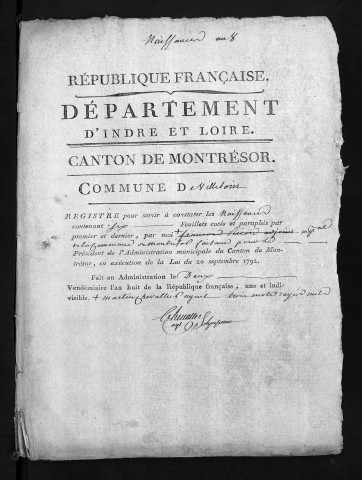 Naissances an 8
RÉPUBLIQUE FRANÇAISE.
DÉPARTEMENT
D'INDRE ET LOIRE.
CANTON DE MONTRÉSOR.
COMMUNE De Villeloin
REGISTRE pour servir à constater les Naissances
contenant six Feuillets cotés et paraphés par
premier et dernier, par moi
de la commune de
Président de l'Administration municipale du Canton de Mon-
trésor, en exécution de la Loi du 20 septembre 1792.
Fait en Administration le Deux
Vendémiaire l'an huit de la République française, une et indi-
visible. + martin